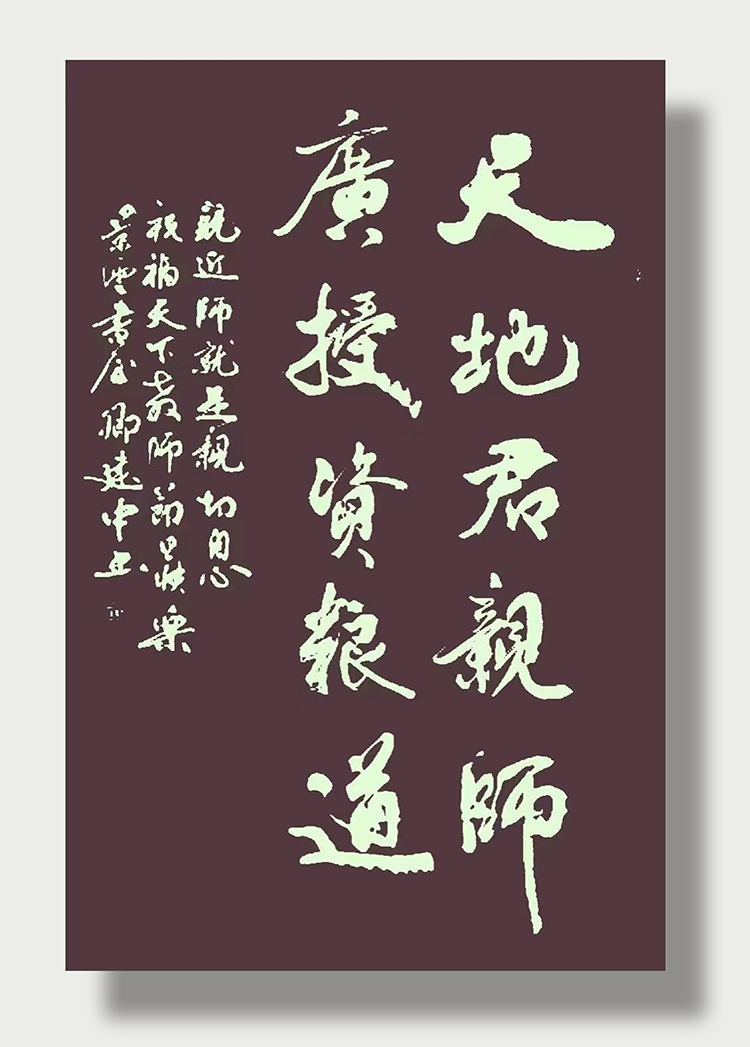 天地君親師
廣授資粮道
親近師就是親切自心
祝福天下教師節日快樂
景雲書屋卿建中書